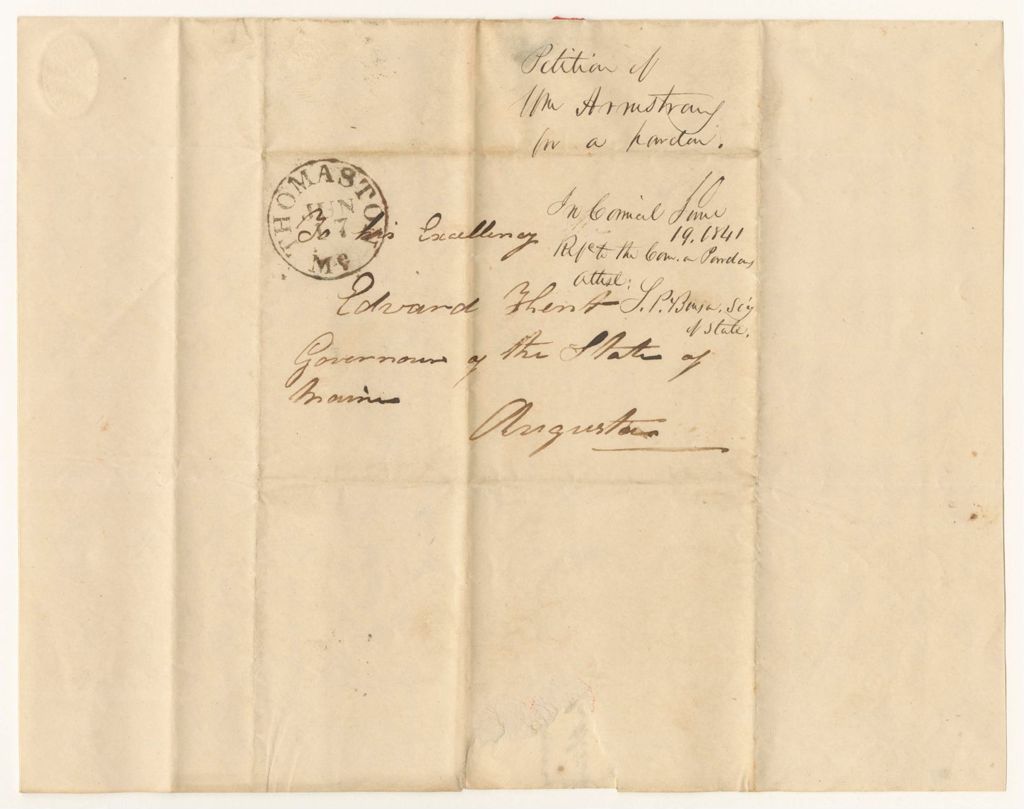 Petition of
Wm Armstrong
for a pardon.
THOMASTON
JUN
17
Me
In Council June
19. 1841
Ref'd to the Com. on Pardons
Attest:
Sec'y
of State.
To his Excellency
Edward Khent
Governour of the State of
Maine
Augusta